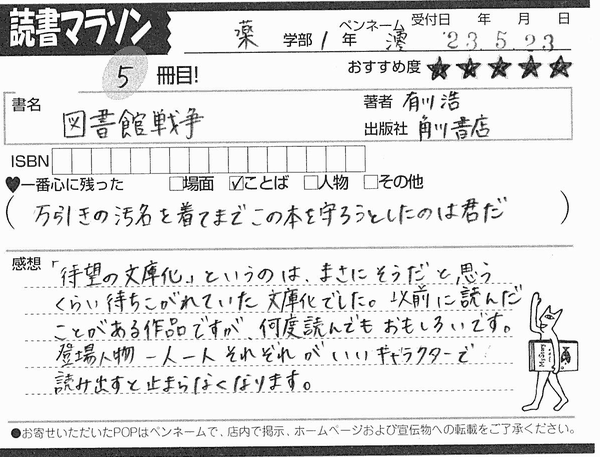 読書マラソン
薬 学部 1 年 ペンネーム 澪 受付日 年 月 日 '23.5.23
5 冊目! おすすめ度 ★★★★★
書名 図書館戦争
著者 有川浩
出版社 角川書店
ISBN
♥一番心に残った □場面 ☑ことば □人物 □その他
(万引きの汚名を着てまでこの本を守ろうとしたのは君だ)
感想 「待望の文庫化」というのは、まさにそうだと思う
くらい待ちこがれていた文庫化でした。以前に読んだ
ことがある作品ですが、何度読んでもおもしろいです。
登場人物一人一人それぞれがいいキャラクターで
読み出すと止まらなくなります。
Mystery
●お寄せいただいたPOPはペンネームで、店内で掲示、ホームページおよび宣伝物への転載をご了承ください。